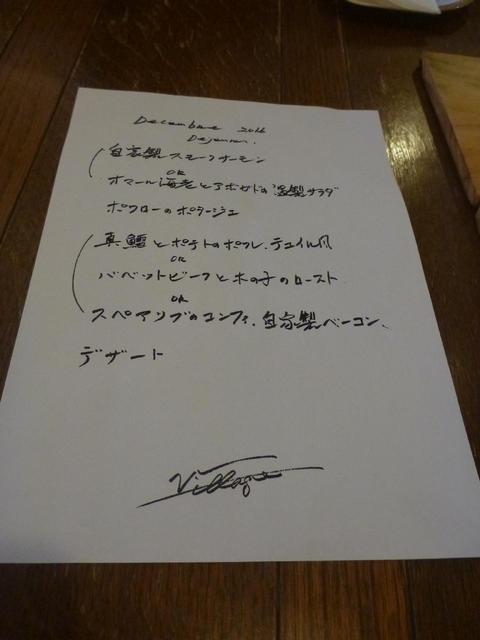 Decembre 2016
Dejeuner.
自家製スモークサーモン
OR
オマール海老とアボカドの温製サラダ
ポワローのポタージュ
真鱈とポテトのポワレ、デュイル風
OR
バベットビーフと木の子のロースト
OR
スペアリブのコンフィ、自家製ベーコン、
デザート
Village